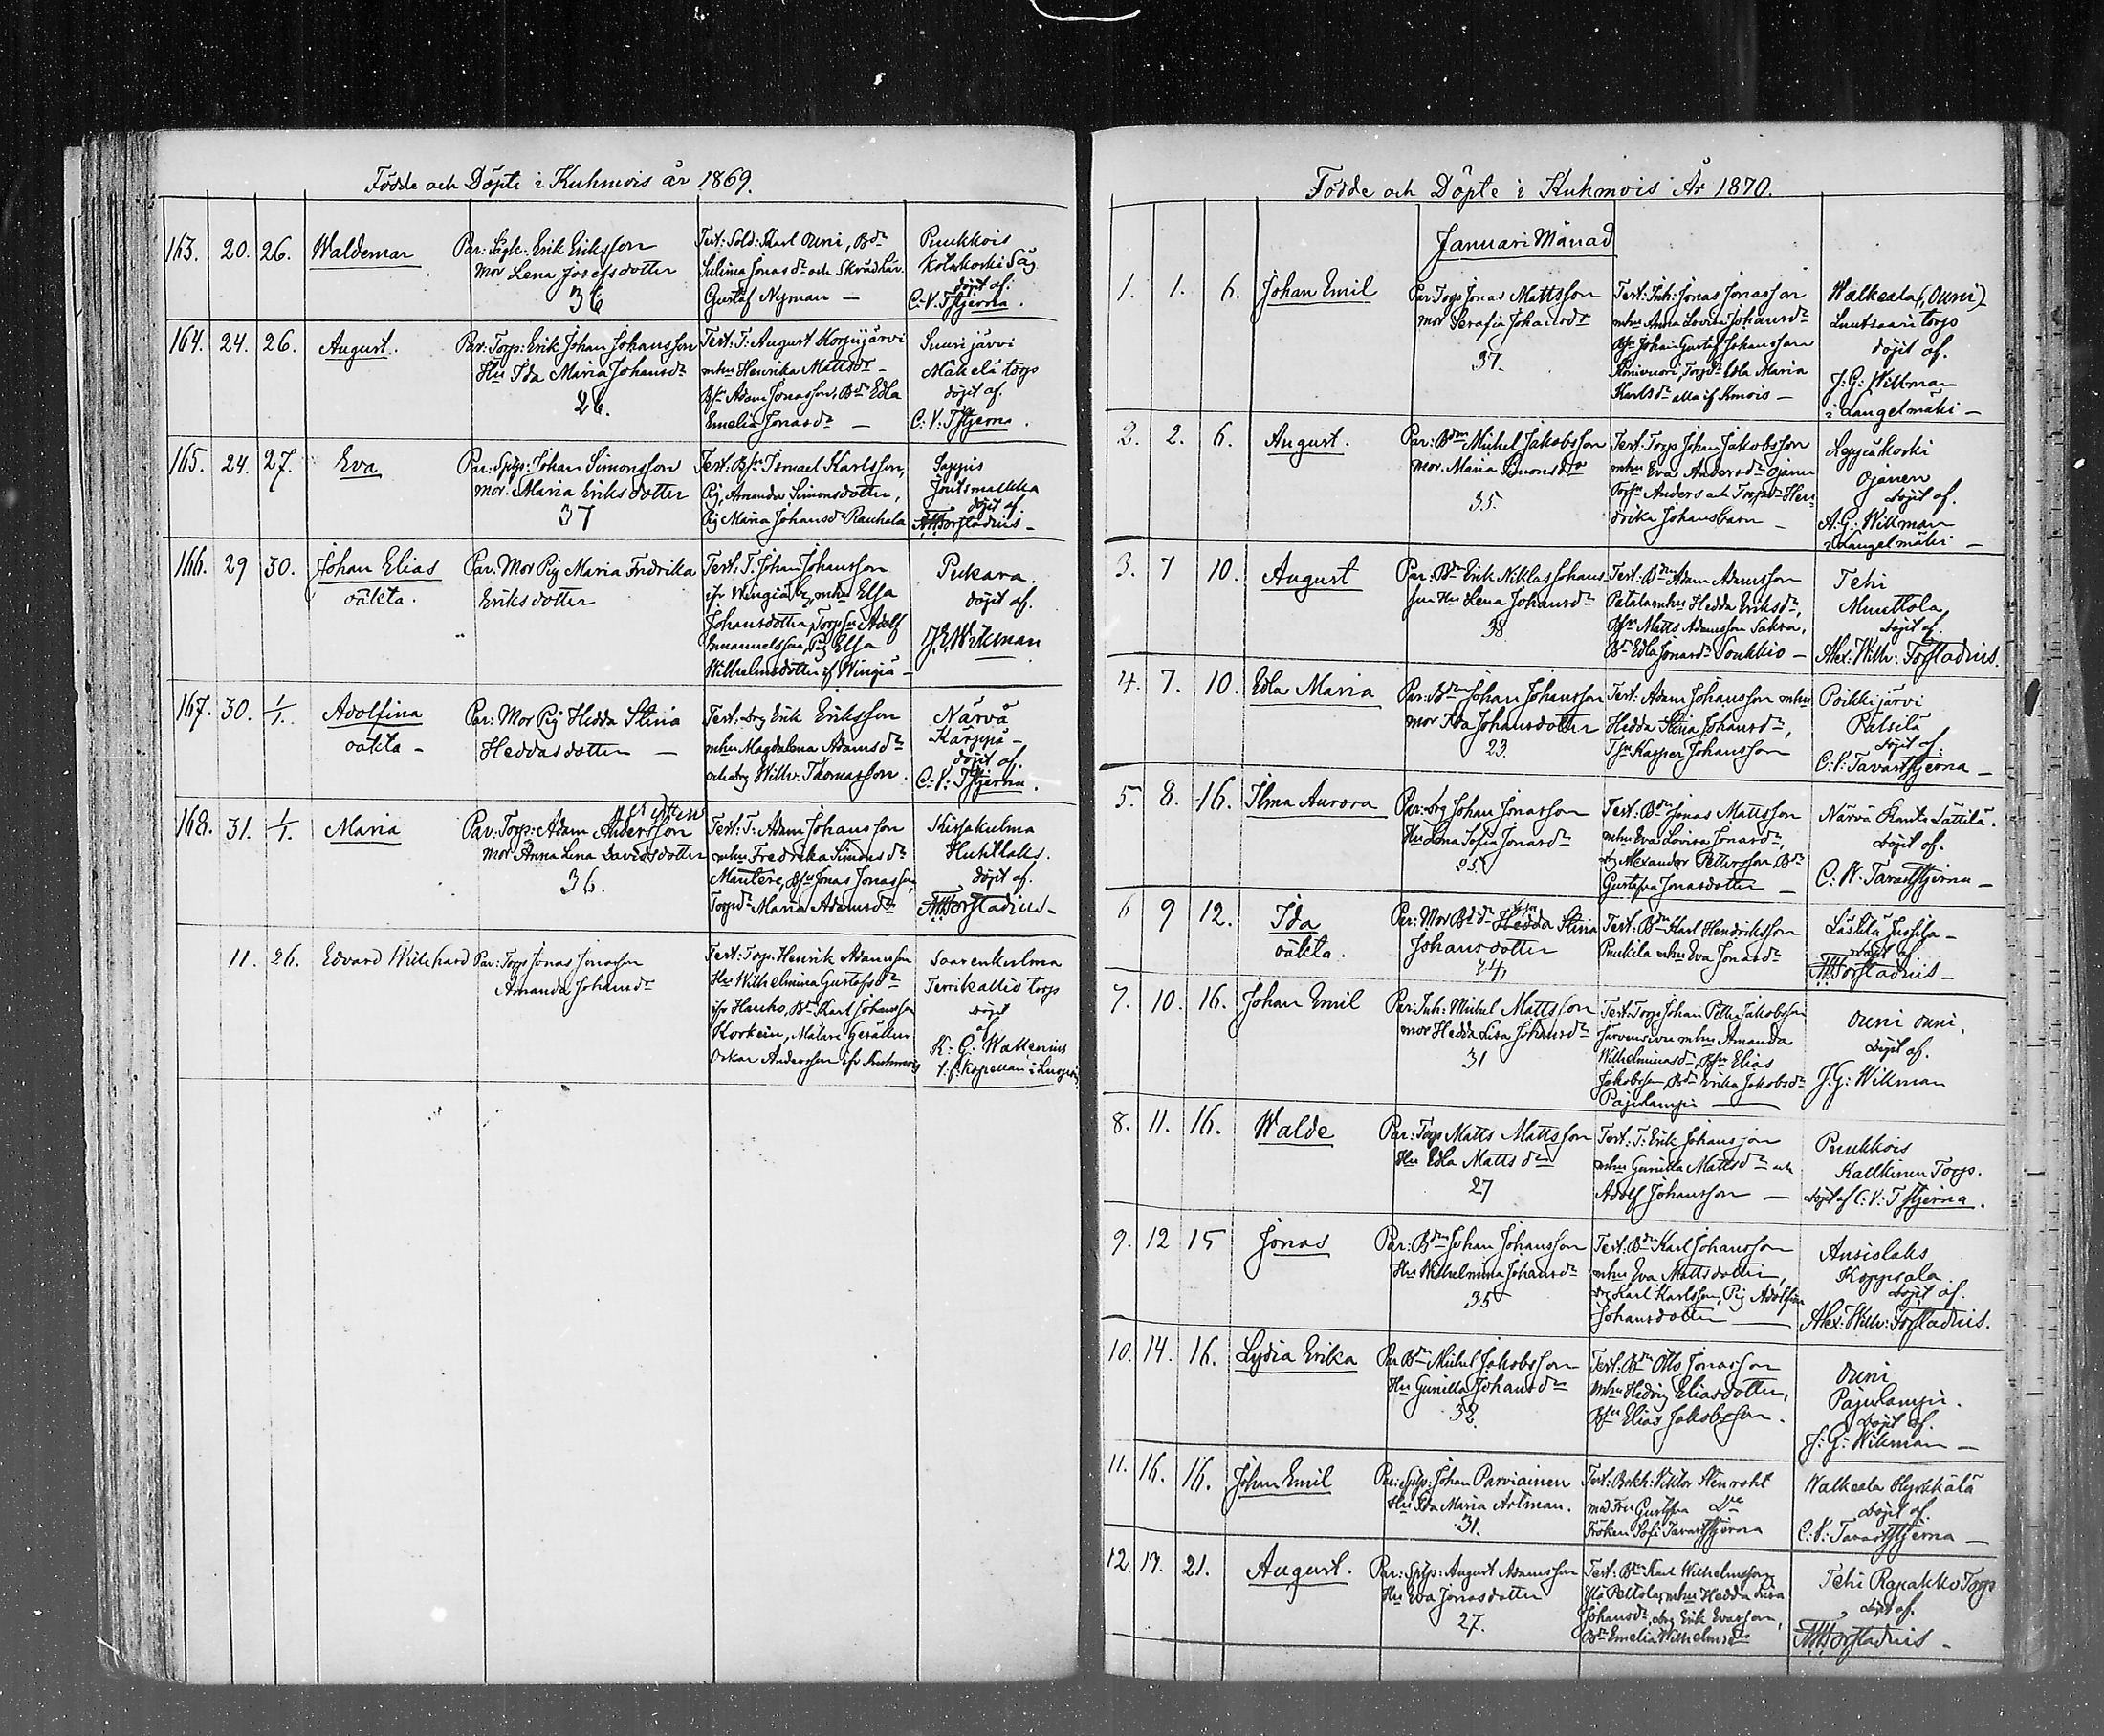 Födde och Döpte i Kuhmois år 1869.
163. 20. 26. Waldemar
Par: Sågk: Erik Eriksson
Mor Lena Josefsdotter
36
Test: Sold: Karl Ouni, Bdr
Sulima Jonasdr och Skräddar.
Gustaf Nyman —
Puukkois
Kolukoski Såg
döpt af.
C. V. Tstjerna.
164. 24. 26. August.
Par: Torp: Erik Johan Johansson
Hu Ida Maria Johansdr
26.
Test: T: August Korpijärvi
mhu Henrika Mattsdr
Bsn Adam Jonasson, Bdr Edla
Emelia Jonasdr —
Suurijärvi
Mäkelä torp
döpt af.
C: V: Tstjerna.
165. 24. 27. Eva
Par: Sptp: Johan Simonsson
mor. Maria Eriksdotter
37
Test. Bsn Ismael Karlsson,
Pig. Amanda Simonsdotter,
Pig Maria Johansdr Rauhala
Sappis
Joutsmalkka
döpt af.
AWForstadius —
166. 29 30. Johan Elias
oäkta.
Par. Mor Pig Maria Fredrika
Eriksdotter
Test. T. Johan Johansson
ifr Wingiä by, mhu Elsa
Johansdotter, Torpsn Adolf
Emanuelsson, Pig Elsa
Wilhelmsdotter if Wingiä —
Pukara.
döpt af.
J. G. Wikman
167. 30. 1/1. Adolfina
oäkta —
Par: Mor Pig Hedda Stina
Heddasdotter —
Test: Drg Erik Eriksson
mhu Magdalena Adamsdr
och drg Wilh: Thomasson.
Närvä
Karppi —
döpt af.
C. V. Tstjerna.
168. 31. 1/1. Maria
Par: Torp: Adam Andersson
Mor Anna Lena Davidsdotter
36.
Test: T: Adam Johansson
mhu Fredrika Simonsdr
Mäntere, Bsn Jonas Jonasson,
Torpdr Maria Adamsdr
Kissakulma
Huhtlaks.
döpt af.
AWForstadius —
11. 26. Edvard Willehard
Par: Torp Jonas Jonasson
Amanda Johansdr
Test: Torp. Henrik Adamsson
Hu Wilhelmina Gustafsdr
ifr Hauko, Bn Karl Johansson
Korkein, Målare Gesällen
Oskar Andersson ifr Kuhmois
Saarenkulma
Terrikallio torp
döpt
af
K: G: Wallenius
Födde och Döpte i Kuhmois År 1870.
Januari Månad
1. 1. 6. Johan Emil
Par: Torp Jonas Mattsson
mor Serafia Johansdr
37.
Test: Inh: Jonas Jonasson
mhu Anna Lovisa Johansdr
Bsn Johan Gustaf Johansson
Torpdr Edla Maria
Karlsdr alla if Kmois —
Walkeala (Ouni)
Luutsaari torp
döpt af.
J: G: Wikman
i Längelmäki —
2. 2. 6. August.
Par: Bdn Mikel Jakobsson
Mor. Maria Simonsdr
35.
Test: Torp Johan Jakobsson
mhu Eva Andersdr Ojanen
Torpsn Anders och Torpdr Hen-
drika Johansbarn —
Leppäkoski
Ojanen
döpt af.
J. G. Wikman
i Längelmäki —
3. 7 10. August
Par: Bdn Erik Niklas Johans-
son Hu Lena Johansdr
38
Test: Bdn Adam Adamsson
Patala mhu Hedda Eriksdr,
Bsn Matts Adamsson Saksa,
Bdr Edla Jonasdr Soukkio —
Tehi
Anuttola
döpt af.
Alex: Wilh: Forstadius.
4. 7. 10. Edla Maria
Par: Bdn Johan Johansson
mor Ida Johansdotter
23.
Test: Adam Johansson mhu
Hedda Stina Johansdr,
Tsn Kasper Johansson
Poikkijärvi
Pätsilä
döpt af.
C: V: Tavaststjerna —
5. 8. 16. Ilma Aurora
Par: Drg Johan Jonasson
Hu Lena Sofia Jonasdr
25.
Test: Bdn Jonas Mattsson
mhu Eva Lovisa Jonasdr,
drg Alexander Pettersson, Bdr
Gustafva Jonasdotter —
Närvä Lättilä.
döpt af.
C: V. Tavaststjerna —
6 9 12. Ida
oäkta.
Par: Mor Bdr Hedda Stina
Johansdotter
24
Test: Bdn Karl Hendriksson
Puukila mhu Eva Jonasdr
Lästilä Jussila —
döpt af
AWForstadius —
7. 10. 16. Johan Emil
Par: Inh: Mikel Mattsson
mor Hedda Lisa Johansdr
31
Test: Torp Johan Petter Jakobsson
Järvensivu mhu Amanda
Wilhelminasdr, Bsn Elias
Jakobsson, Bdr Erika Jakobsdr
Pajulampi —
Ouni Ouni.
döpt af.
J. G: Wikman
8. 11. 16. Walde
Par: Torp Matts Mattsson
Hu Edla Mattsdr
27
Test: T: Erik Johansson
mhu Gunilla Mattsdr och
Adolf Johansson —
Puukkois
Kalkkinen Torp.
döpt af C: V: Tstjerna.
9. 12 15 Jonas
Par: Bdn Johan Johansson
Hu Wilhelmina Johansdr
35
Test: Bdn Karl Johansson
mhu Eva Mattsdotter,
drg Karl Karlsson, Pig Adolfina
Johansdotter —
Ansiolaks
Koppsala.
döpt af.
Alex: Wilh: Forstadius.
10. 14. 16. Lydia Erika
Par Bdn Mikel Jakobsson
Hu Gunilla Johansdr
32.
Test: Bdn Otto Jonasson
mhu Hedvig Eliasdotter,
Bsn Elias Jakobsson.
Ouni
Pajulampi.
döpt af.
J: G: Wikman —
11. 16. 16. Johan Emil
Par: Sptp: Johan Parviainen
Hu Ida Maria Artman.
31.
Test: Bokh: Viktor Stenroht
med Fru Gustafva
Fröken Sofi Tavaststjerna
Walkeala Hyrkkälä
döpt af.
C: V: Tavaststjerna —
12. 17. 21. August.
Par: Sptp: August Adamsson
Hu Eva Jonasdotter
27.
Test: Bdn Karl Wilhelmsson
Yli Peltola, mhu Hedda Lisa
Johansdr, drg Erik Evasson,
Bdr Emelia Wilhelmsdr
Tehi Rapakko Torp
döpt af.
AWForstadius —